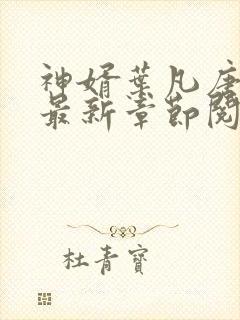 神婿葉凡唐
最新章節閱
杜青寶